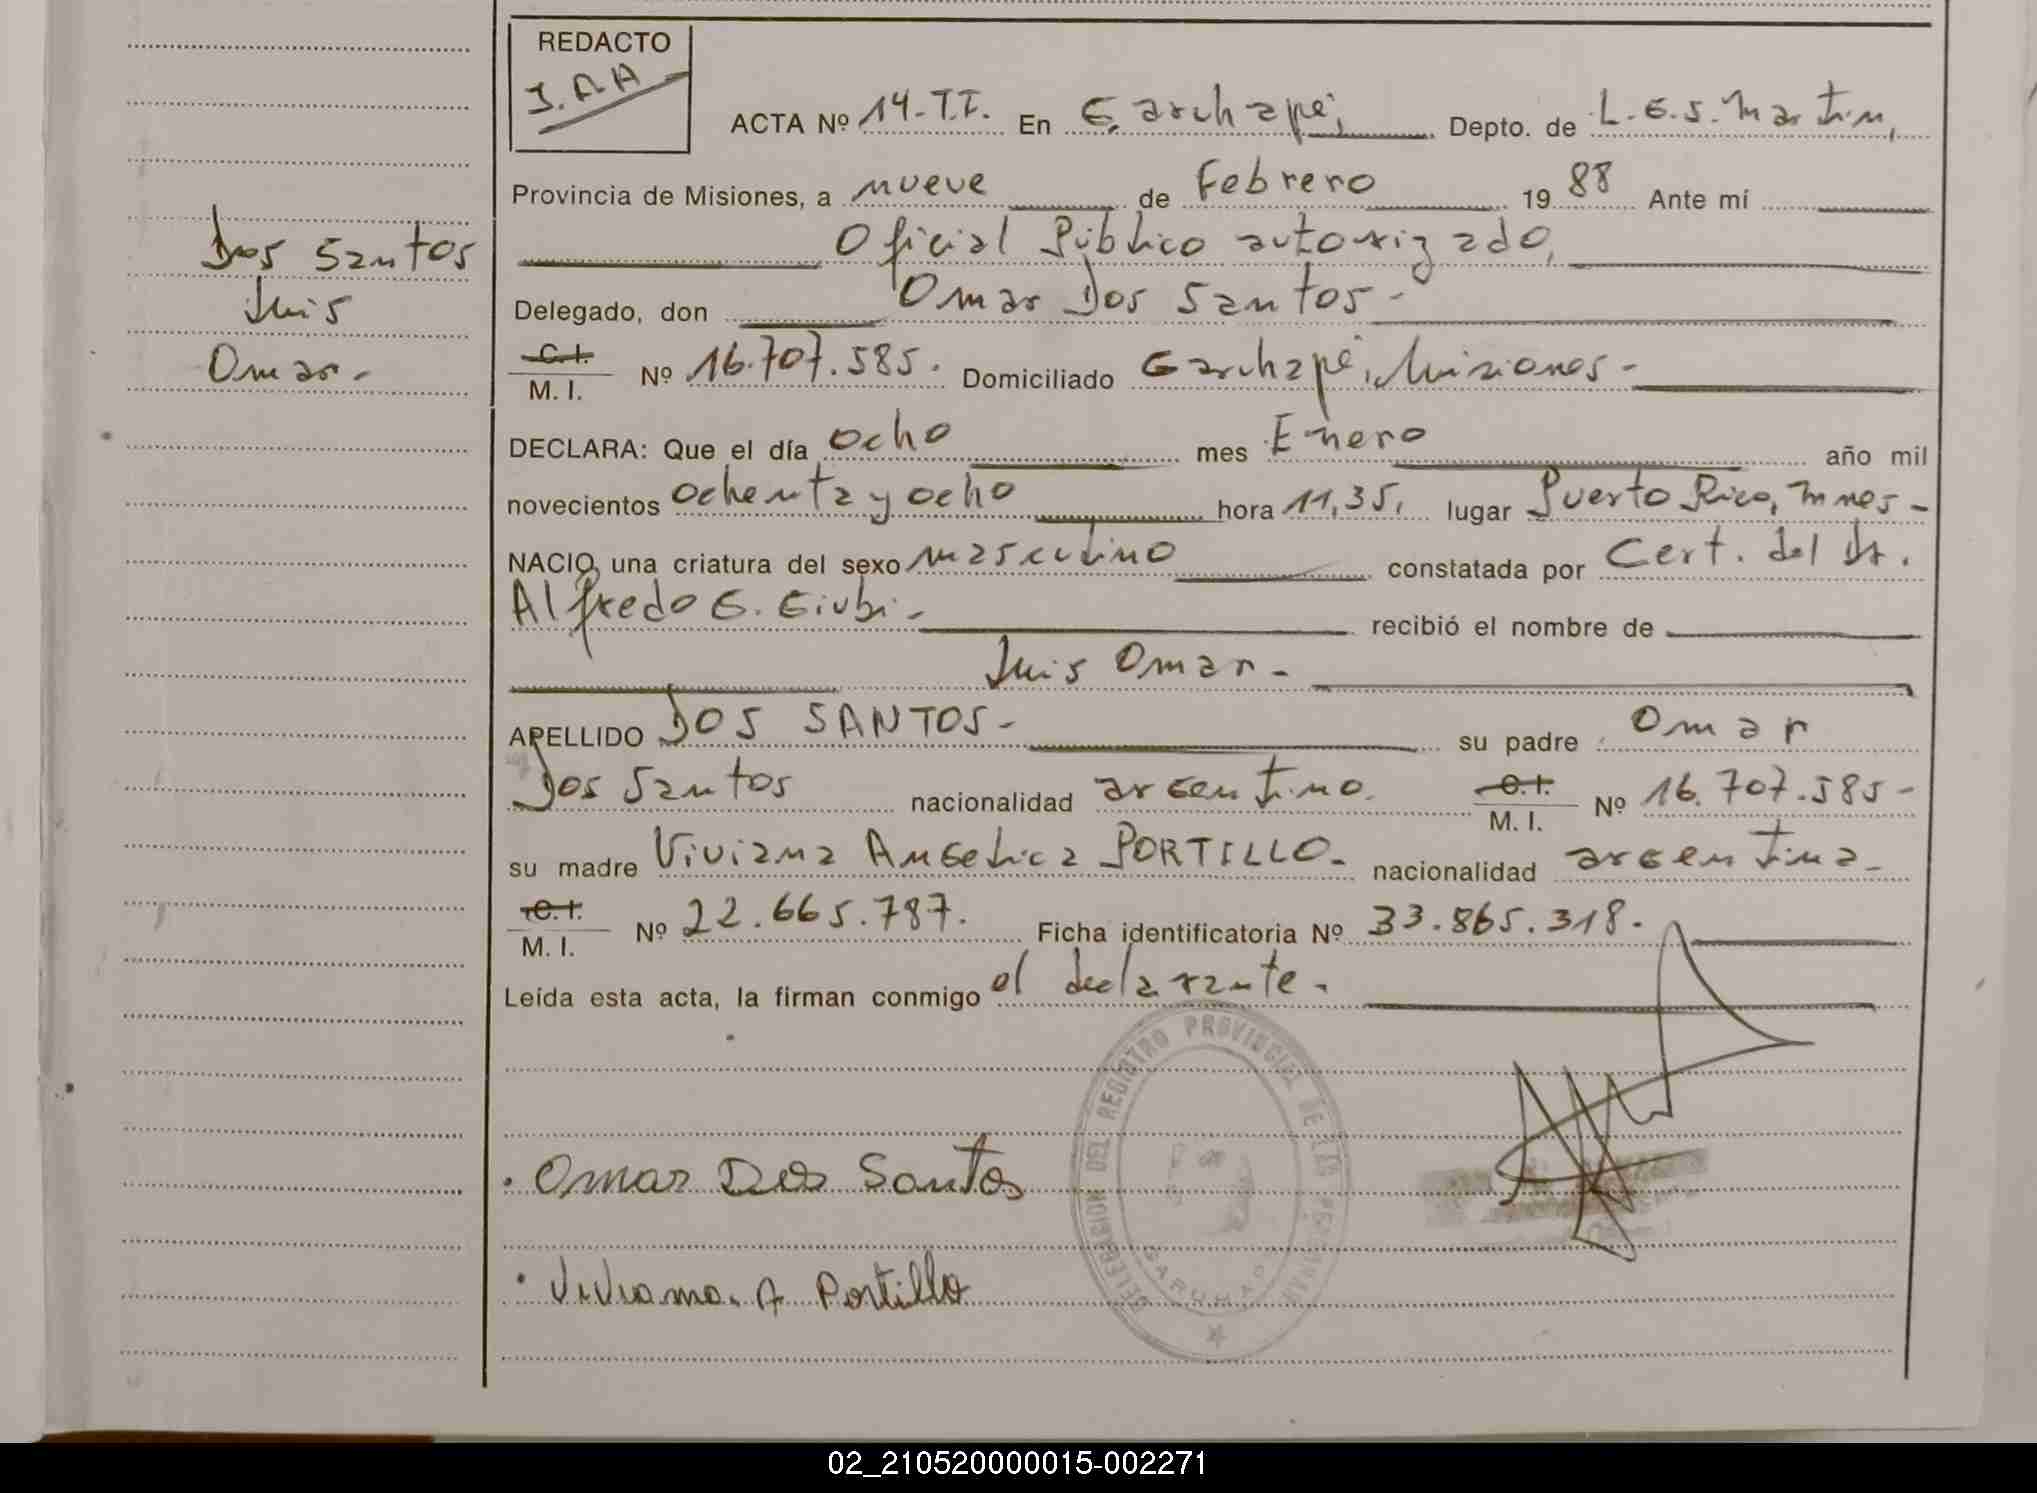 REDACTO
J.A.A
ACTA Nº 14-T.I. En Garuhapé, Depto. de L.G.S. Martin,
Provincia de Misiones, a nueve de Febrero 19 88 Ante mí
Oficial Público autorizado,
Delegado, don Omar Dos Santos-
C.I. M. I. Nº 16.707.585. Domiciliado Garuhapé, Misiones-
DECLARA: Que el día ocho mes Enero año mil
novecientos ochenta y ocho hora 11,35, lugar Puerto Rico, Mnes-
NACIO, una criatura del sexo masculino constatada por Cert. del Dr.
Alfredo G. Giubi- recibió el nombre de
Luis Omar-
APELLIDO DOS SANTOS- su padre Omar
Dos Santos nacionalidad argentino. C.I. M. I. Nº 16.707.585-
su madre Viviana Angelica PORTILLO- nacionalidad argentina-
C.I. M. I. Nº 22.665.787. Ficha identificatoria Nº 33.865.318.
Leída esta acta, la firman conmigo el declarante.
Dos Santos
Luis
Omar-
DELEGACION DEL REGISTRO PROVINCIAL DE LAS PERSONAS
GARUHAPE
Omar Dos Santos
Viviana. A Portillo
02_210520000015-002271